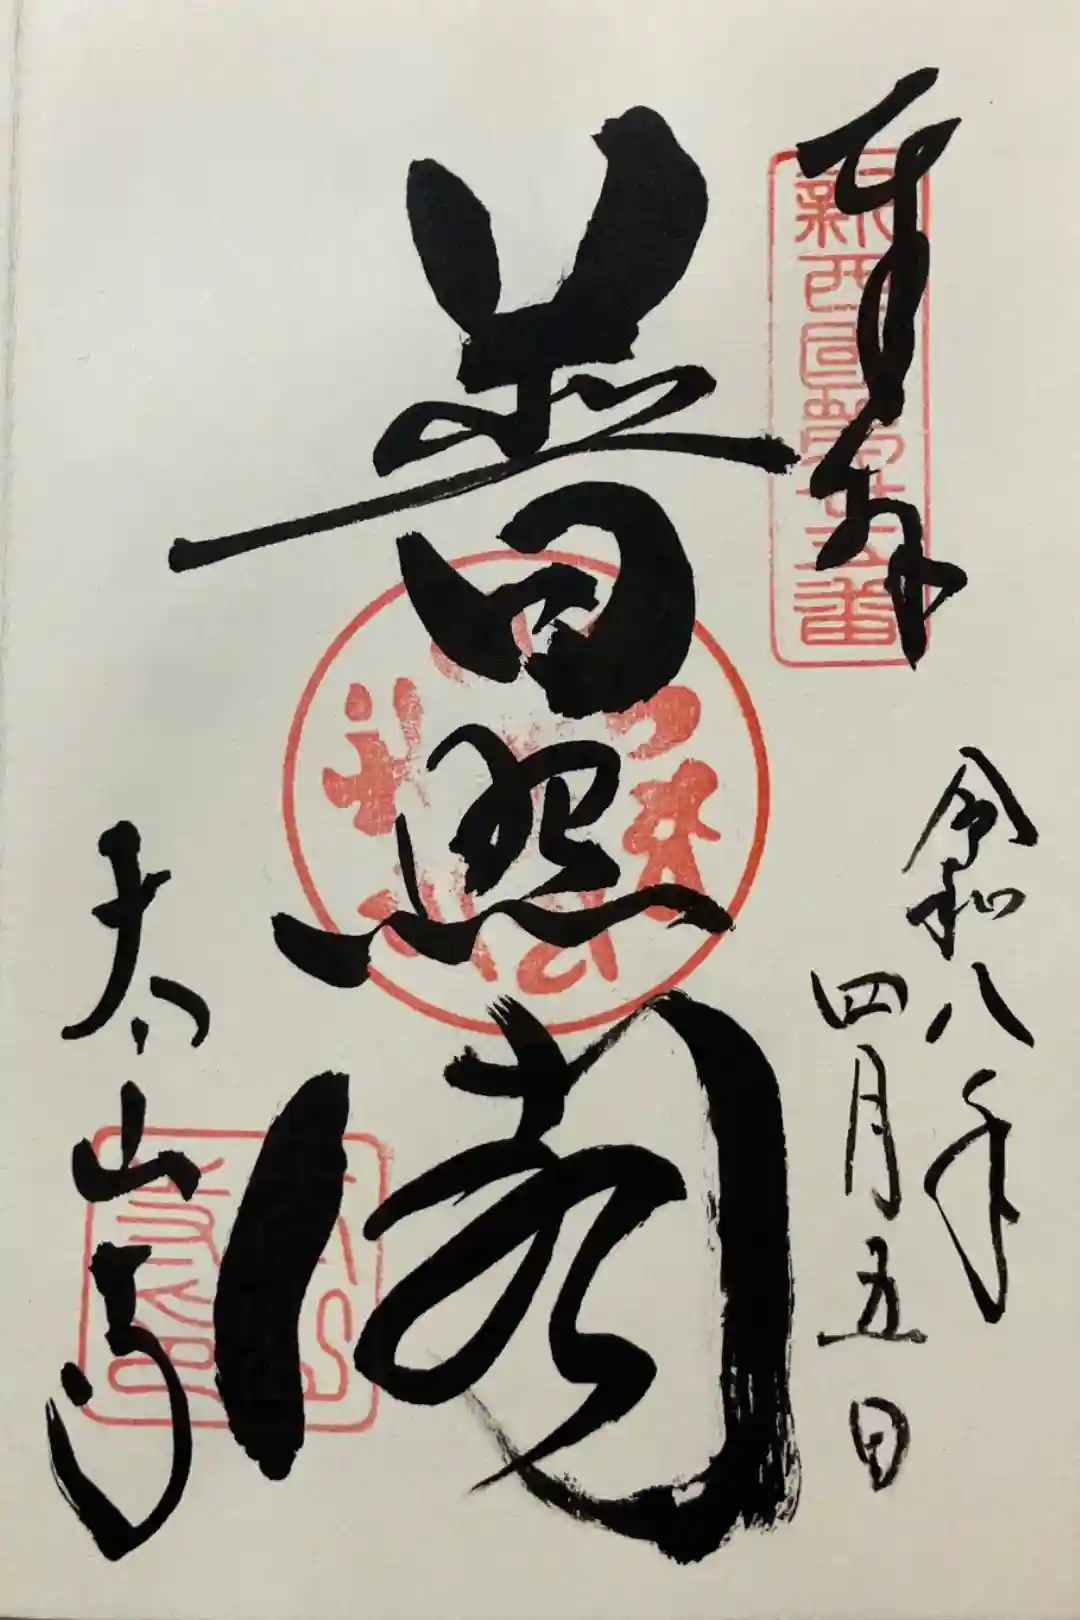 奉拝
新西国第廿五番
令和八年
四月五日
普照閣
太山寺